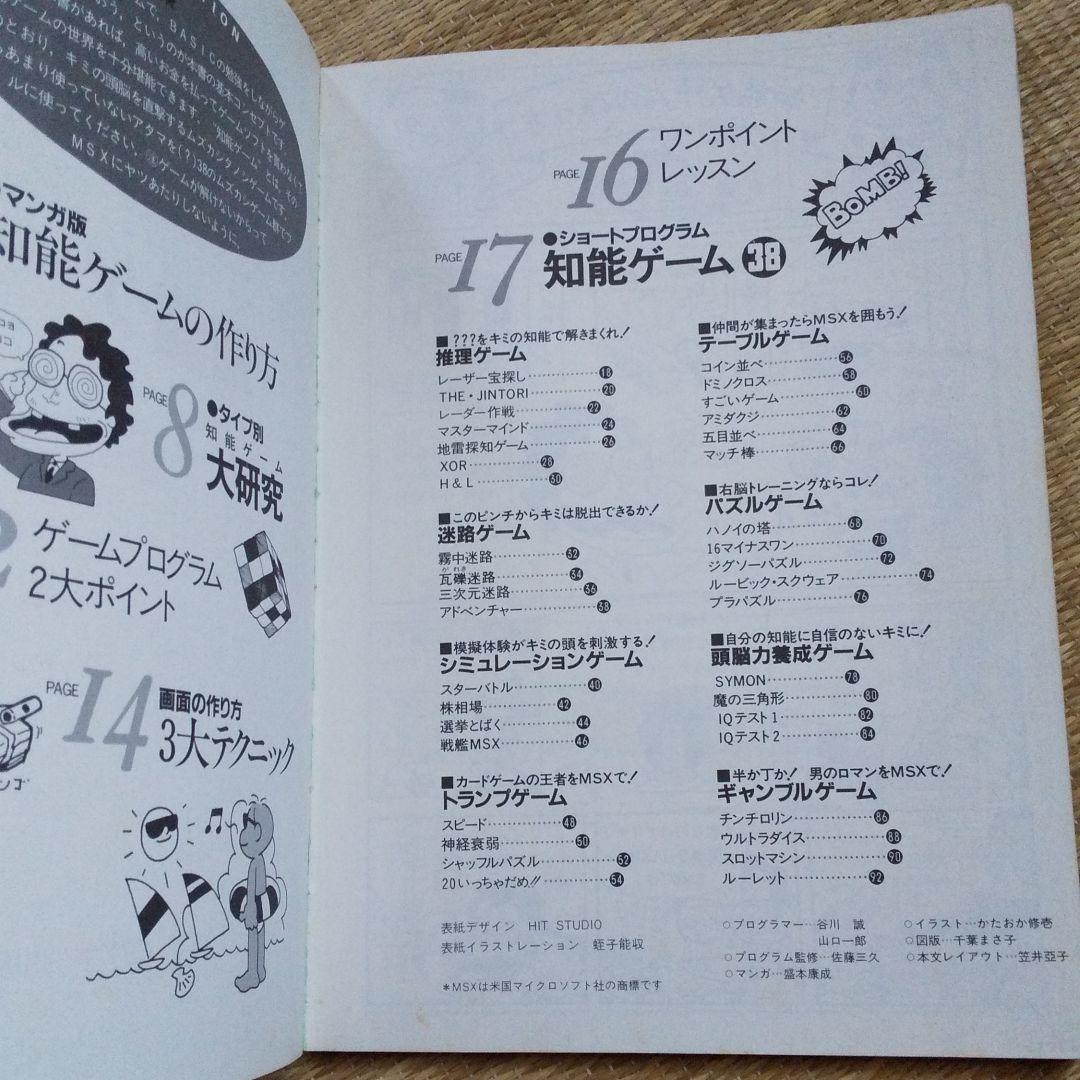 ION
で、BASICの勉強をしながらゲ
おう、というのが本書の基本コンセプトです。
高があれば、高いお金を払ってゲームソフトを買わなくて
ゲームの世界を十分堪能できます。"知能ゲーム"とは、その
のとおり、キミの頭脳を直撃するムズカンタノシゲームです。
あまり使っていないアタマを(?)38のムズカシゲーム群でフ
ルに使ってください。ゲームが解けないからって
MSXにヤツあたりしないように。
マンガ版
知能ゲームの作り方
PAGE 8
●タイプ別
知能ゲーム
大研究
2
ゲームプログラム
2大ポイント
PAGE 14
画面の作り方
3大テクニック
PAGE 16
ワンポイント
レッスン
BOMB!
PAGE 17
●ショートプログラム
知能ゲーム 38
■???をキミの知能で解きまくれ!
推理ゲーム
レーザー宝探し 18
THE・JINTORI 20
レーダー作戦 22
マスターマインド 24
地雷探知ゲーム 26
XOR 28
H&L 30
■このピンチからキミは脱出できるか!
迷路ゲーム
霧中迷路 32
がれき
瓦礫迷路 34
三次元迷路 36
アドベンチャー 38
■模擬体験がキミの頭を刺激する!
シミュレーションゲーム
スターバトル 40
株相場 42
選挙とばく 44
戦艦MSX 46
■カードゲームの王者をMSXで!
トランプゲーム
スピード 48
神経衰弱 50
シャッフルパズル 52
20いっちゃだめ!! 54
■仲間が集まったらMSXを囲もう!
テーブルゲーム
コイン並べ 56
ドミノクロス 58
すごいゲーム 60
アミダクジ 62
五目並べ 64
マッチ棒 66
■右脳トレーニングならコレ!
パズルゲーム
ハノイの塔 68
16マイナスワン 70
ジグソーパズル 72
ルービック・スクウェア 74
プラパズル 76
■自分の知能に自信のないキミに!
頭脳力養成ゲーム
SYMON 78
魔の三角形 80
IQテスト1 82
IQテスト2 84
■半か丁か! 男のロマンをMSXで!
ギャンブルゲーム
チンチロリン 86
ウルトラダイス 88
スロットマシン 90
ルーレット 92
表紙デザイン HIT STUDIO
表紙イラストレーション 蛭子能収
＊MSXは米国マイクロソフト社の商標です
○プログラマー…谷川 誠
山口一郎
○プログラム監修…佐藤三久
○マンガ…盛本康成
○イラスト…かたおか修壱
○図版…千葉まさ子
○本文レイアウト…笠井亞子